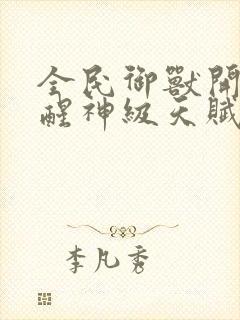 全民御獸開
醒神級天賦
李凡秀